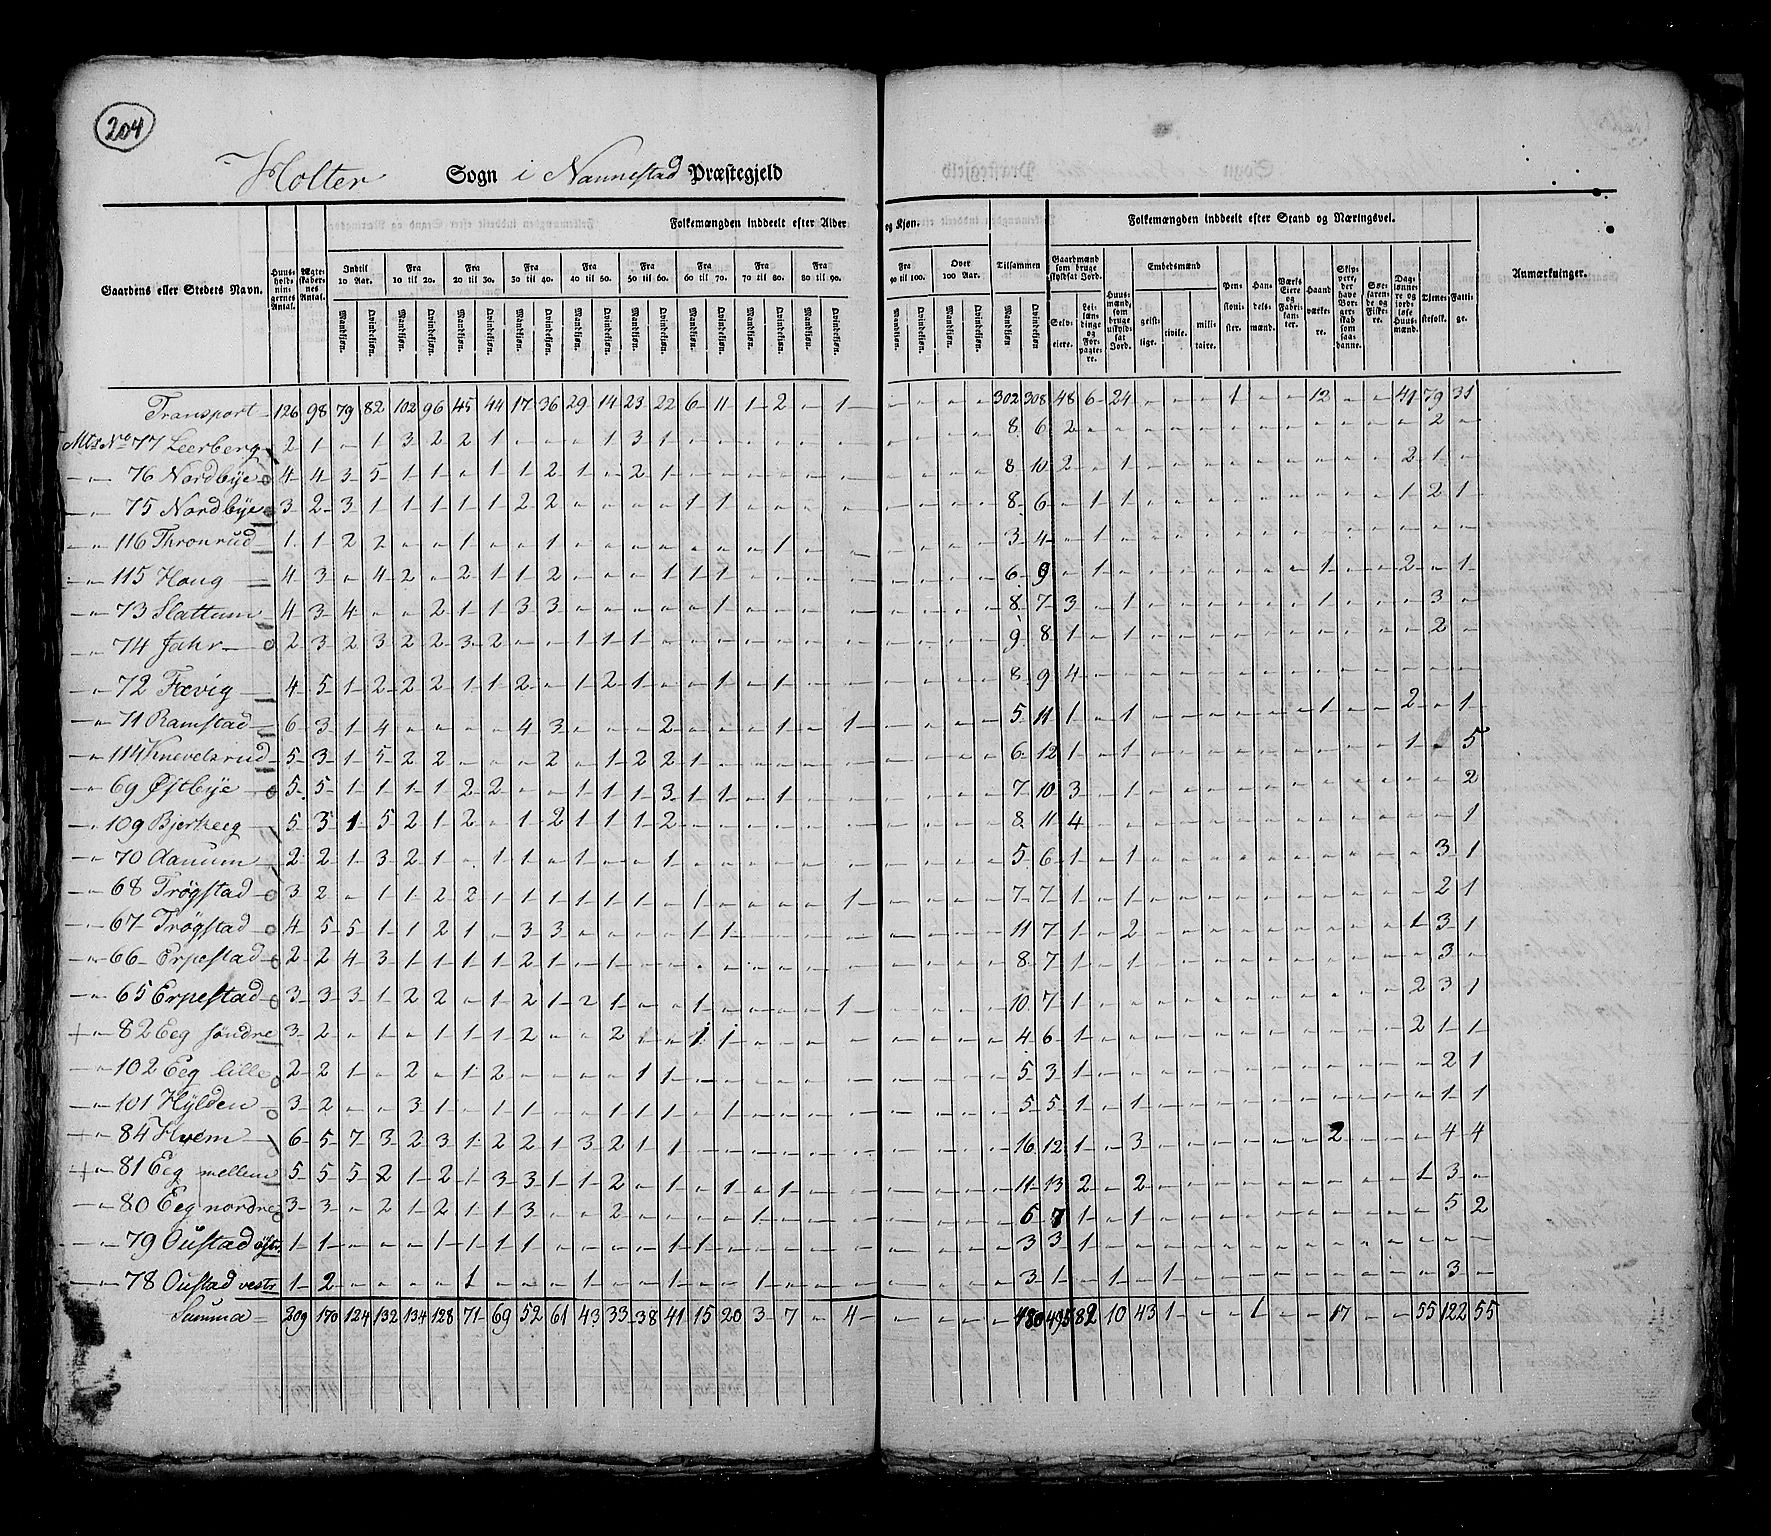 204
Holter Sogn i Nannestad Præstegjeld
Gaardens eller Stedets Navn. Huusholdningernes Antal. Ægteskabernes Antal. Folkemængden inddeelt efter Alder og Kjøn. Tilsammen Folkemængden inddeelt efter Stand og Næringsvei. Anmærkninger.
Indtil 10 Aar. Fra 10 til 20. Fra 20 til 30. Fra 30 til 40. Fra 40 til 50. Fra 50 til 60. Fra 60 til 70. Fra 70 til 80. Fra 80 til 90. Fra 90 til 100. Over 100 Aar.
Gaardmænd som bruge skyldsat Jord. Selveiere. Leilændinge og Forpagtere. Huusmænd, som bruge uskyldsat Jord. Embedsmænd geistlige. civile. militaire. Pensionister. Handelsmænd. Værks Eiere og Fabrikanter. Haandværkere. Skippere, der have Borgerskab som saadanne. Søefarende og Fiskere. Daglønnere og jordløse Huusmænd. Tjenestefolk. Fattige.
Mandkjøn. Qvindekjøn. Mandkjøn. Qvindekjøn. Mandkjøn. Qvindekjøn. Mandkjøn. Qvindekjøn. Mandkjøn. Qvindekjøn. Mandkjøn. Qvindekjøn. Mandkjøn. Qvindekjøn. Mandkjøn. Qvindekjøn. Mandkjøn. Qvindekjøn. Mandkjøn. Qvindekjøn. Mandkjøn. Qvindekjøn. Mandkjøn Qvindekjøn
Transport 126 98 79 82 102 96 45 44 17 36 29 14 23 22 6 11 1 2 - 1 - - - - 302 308 48 6 24 - - - 1 - - 12 - - 41 79 31
Mtr No 77 Leerberg 2 1 - 1 3 2 2 1 - - - 1 3 1 - - - - - - - - - - 8 6 2 - - - - - - - - - - - - 2 -
" 76 Nordbÿe 4 4 3 5 1 1 - 1 1 2 1 - 2 1 - - - - - - - - - - 8 10 2 - 1 - - - - - - - - - 2 1 -
" 75 Nordbÿe 3 2 3 1 1 1 1 1 2 2 - - - - 1 1 - - - - - - - - 8 6 - 1 1 - - - - - - - - - 1 2 1
" 116 Thronrud 1 1 2 2 - - 1 - - 1 - - - - - - - 1 - - - - - - 3 4 - 1 - - - - - - - - - - - - -
" 115 Houg 4 3 - 4 2 - 2 1 1 2 - - - 1 1 1 - - - - - - - - 6 9 - 1 - - - - - - - 1 - - 2 - 1
" 73 Slattum 4 3 4 - - 2 1 1 3 3 - - - - - 1 - - - - - - - - 8 7 3 - 1 - - - - - - 1 - - - 3 -
" 74 Jahr 2 3 2 3 2 2 3 2 - - 1 1 1 - - - - - - - - - - - 9 8 1 - 1 - - - - - - - - - - 2 -
" 72 Fævig 4 5 1 2 2 2 1 1 2 - 1 2 1 - - 1 - 1 - - - - - - 8 9 4 - - - - - - - - - - - - - -
" 71 Ramstad 6 3 1 4 - - - - 4 3 - - - 2 - - - 1 - 1 - - - - 5 11 1 - 1 - - - - - - 1 - - 2 - 1
" 114 Knevelsrud 5 3 1 5 2 2 - - - 2 - 1 2 2 1 - - - - - - - - - 6 12 1 - 1 - - - - - - - - - 1 - 5
" 69 Østbÿe 5 5 1 1 1 1 2 2 - - 1 1 1 3 1 1 - 1 - - - - - - 7 10 3 - 1 - - - - - - - - - - - 2
" 109 Bjerkeeg 5 3 1 5 2 1 2 - 1 2 1 1 1 2 - - - - - - - - - - 8 11 4 - - - - - - - - - - - - - 1
" 70 Aanum 2 2 1 3 2 1 - 1 1 - 1 - - 1 - - - - - - - - - - 5 6 1 - 1 - - - - - - - - - - 3 1
" 68 Trøgstad 3 2 - 1 1 2 2 1 1 1 1 1 1 - 1 - - - - 1 - - - - 7 7 1 - 1 - - - - - - - - - - 2 1
" 67 Trøgstad 4 5 5 1 1 2 1 - 3 3 - - - - 1 1 - - - - - - - - 11 7 1 - 2 - - - - - - - - - 1 3 1
" 66 Erpestad 2 2 4 3 1 1 1 1 2 1 - 1 - - - - - - - - - - - - 8 7 1 - 1 - - - - - - - - - - 3 -
" 65 Erpestad 3 3 3 1 2 2 - 1 2 1 2 1 - - 1 - - - - 1 - - - - 10 7 1 - - - - - - - - - - - 2 3 1
" 82 Eeg søndre 3 2 - 1 - 1 1 1 2 - - 2 - - 1 1 - - - - - - - - 4 6 1 - - - - - - - - - - - 2 1 1
" 102 Eeg lille 2 2 1 - 2 - 1 2 - - - - 1 1 - - - - - - - - - - 5 3 1 - - - - - - - - - - - - 2 1
" 101 Hÿlden 3 2 - - 3 1 - 1 1 - - 1 1 1 - 1 - - - - - - - - 5 5 1 - 1 - - - - - - - - - - 1 1
" 84 Hvem 6 5 7 3 2 3 1 2 2 1 3 2 1 1 - - - - - - - - - - 16 12 1 - 3 - - - - - - 2 - - - 4 4
" 81 Eeg mellem 5 5 5 2 1 2 1 3 3 1 1 2 - 1 - 1 - 1 - - - - - - 11 13 2 - 2 - - - - - - - - - 1 3 -
" 80 Eeg nordre 3 3 - 2 1 2 1 1 3 - - 2 - - - - 1 - - - - - - - 6 7 1 - 1 - - - - - - - - - - 5 2
" 79 Oustad østr. 1 1 - - - 1 1 1 1 - - - - 1 1 - - - - - - - - - 3 3 1 - - - - - - - - - - - - - -
" 78 Oustad vestr 1 2 - - - - 1 - - - 1 - - 1 - - 1 - - - - - - - 3 1 - 1 - 1 - - - - - - - - - 3 -
Summa 209 170 124 132 134 128 71 69 52 61 43 33 38 41 15 20 3 7 - 4 - - - - 480 495 82 10 43 1 - - 1 - - 17 - - 55 122 55